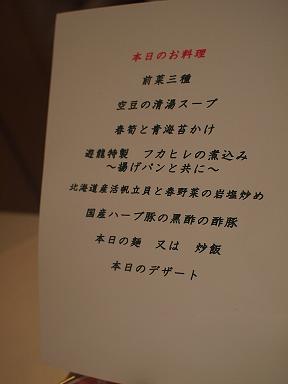 本日のお料理
前菜三種
空豆の清湯スープ
春筍と青海苔かけ
遊龍特製　フカヒレの煮込み
～揚げパンと共に～
北海道産活帆立貝と春野菜の岩塩炒め
国産ハーブ豚の黒酢の酢豚
本日の麺　又は　炒飯
本日のデザート